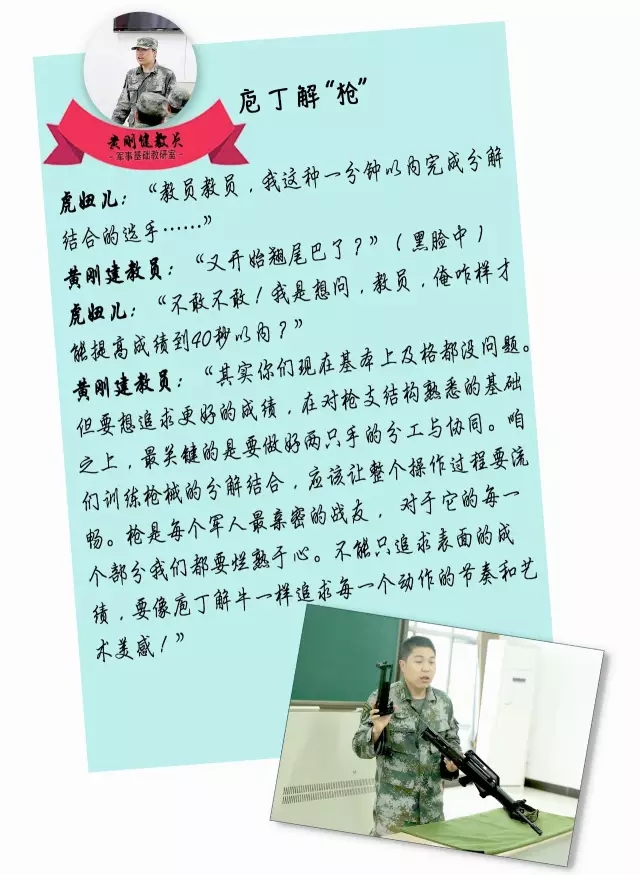 庖丁解“枪”
黄刚健教员
-军事基础教研室-
虎妞儿：“教员教员，我这种一分钟以内完成分解
结合的选手……”
黄刚建教员：“又开始翘尾巴了？”（黑脸中）
虎妞儿：“不敢不敢！我是想问，教员，俺咋样才
能提高成绩到40秒以内？”
黄刚建教员：“其实你们现在基本上及格都没问题。
但要想追求更好的成绩，在对枪支结构熟悉的基础
之上，最关键的是要做好两只手的分工与协同。咱
们训练枪械的分解结合，应该让整个操作过程要流
畅。枪是每个军人最亲密的战友， 对于它的每一
个部分我们都要烂熟于心。不能只追求表面的成
绩，要像庖丁解牛一样追求每一个动作的节奏和艺
术美感！”